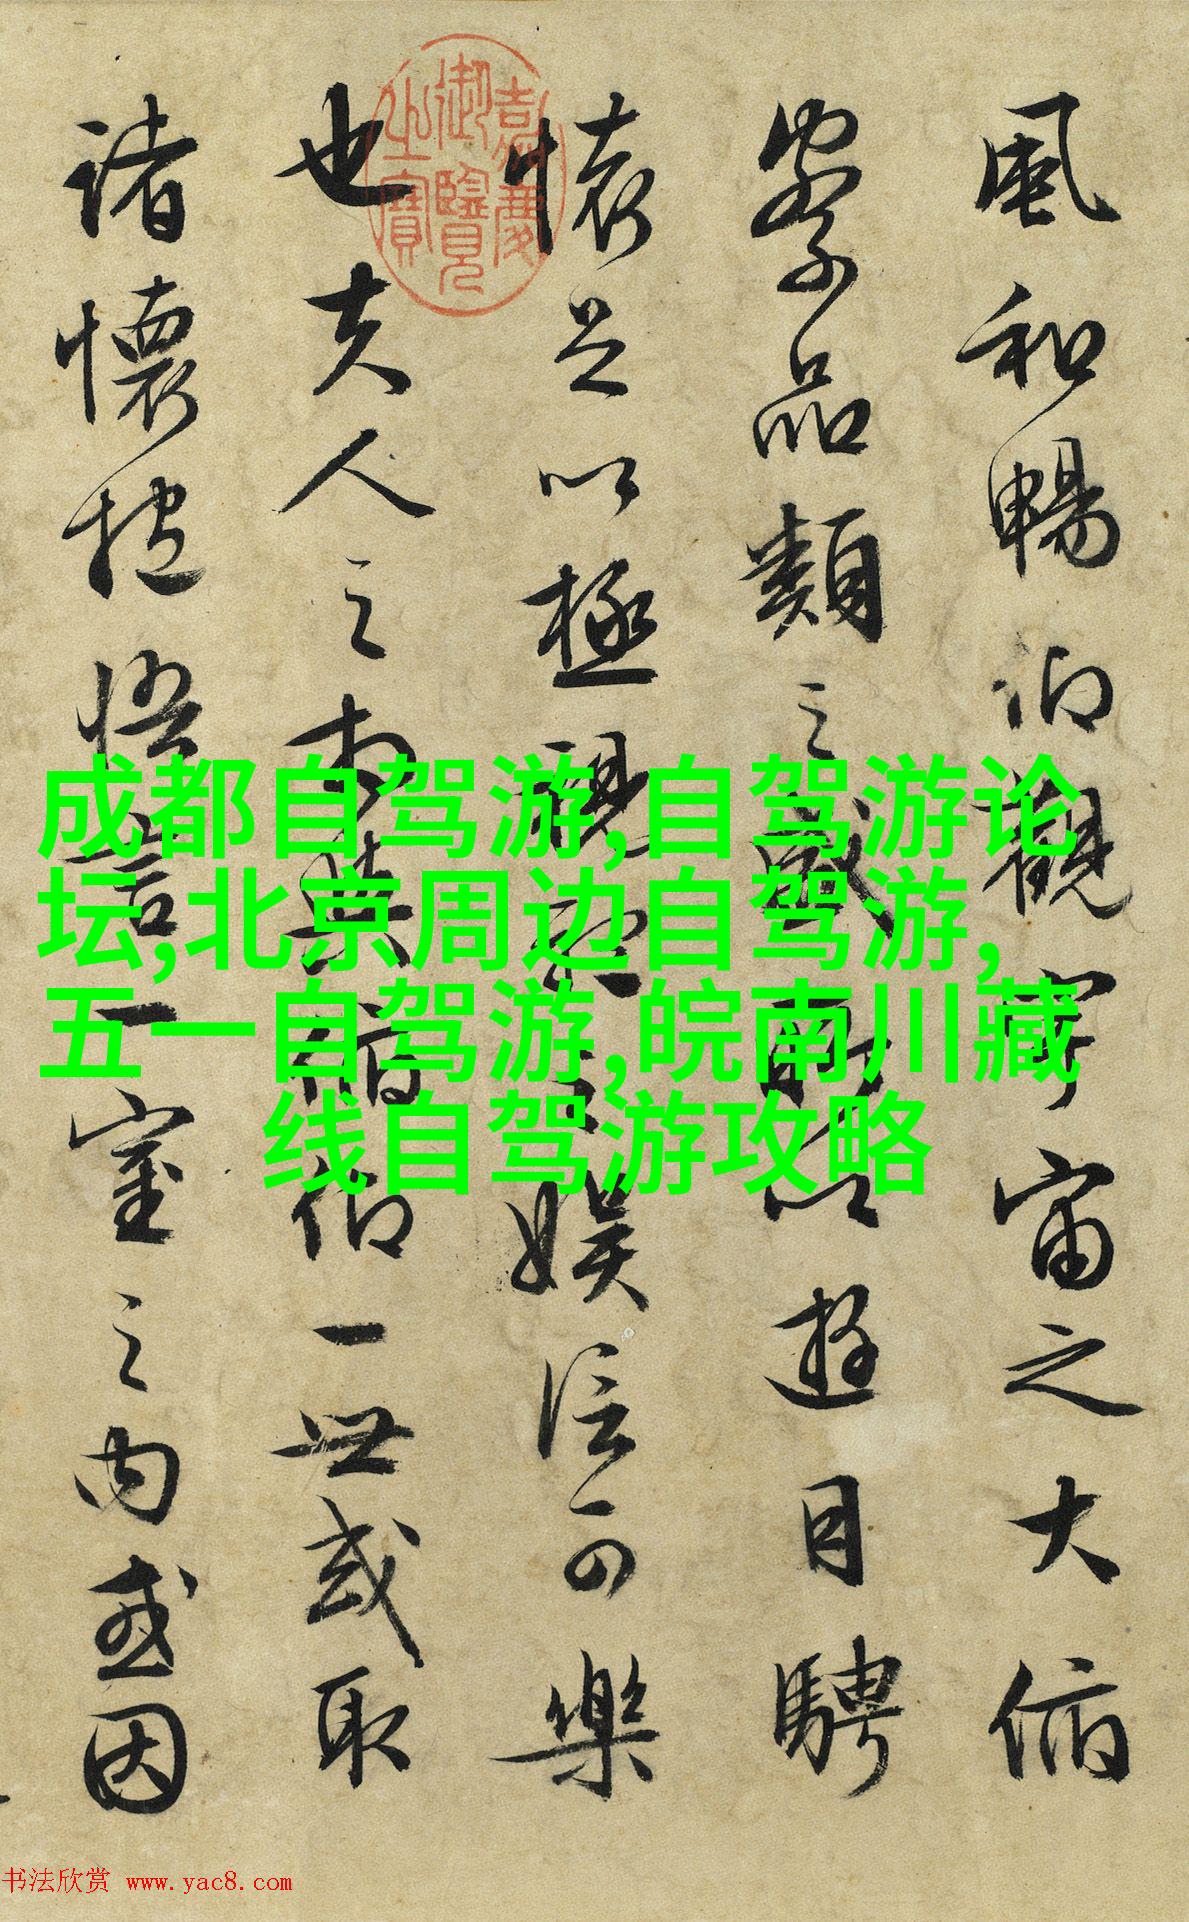 風和暢仰觀宇宙之大俯
察品類之盛所以遊目騁
懐足以極視聽之娱信可樂
也夫人之相與俯仰一世或取
諸懷抱悟言一室之内或因
嘉慶
御覽
之寶
成都自驾游,自驾游论
坛,北京周边自驾游,
五一自驾游,皖南川藏
线自驾游攻略
书法欣赏 www.yac8.com